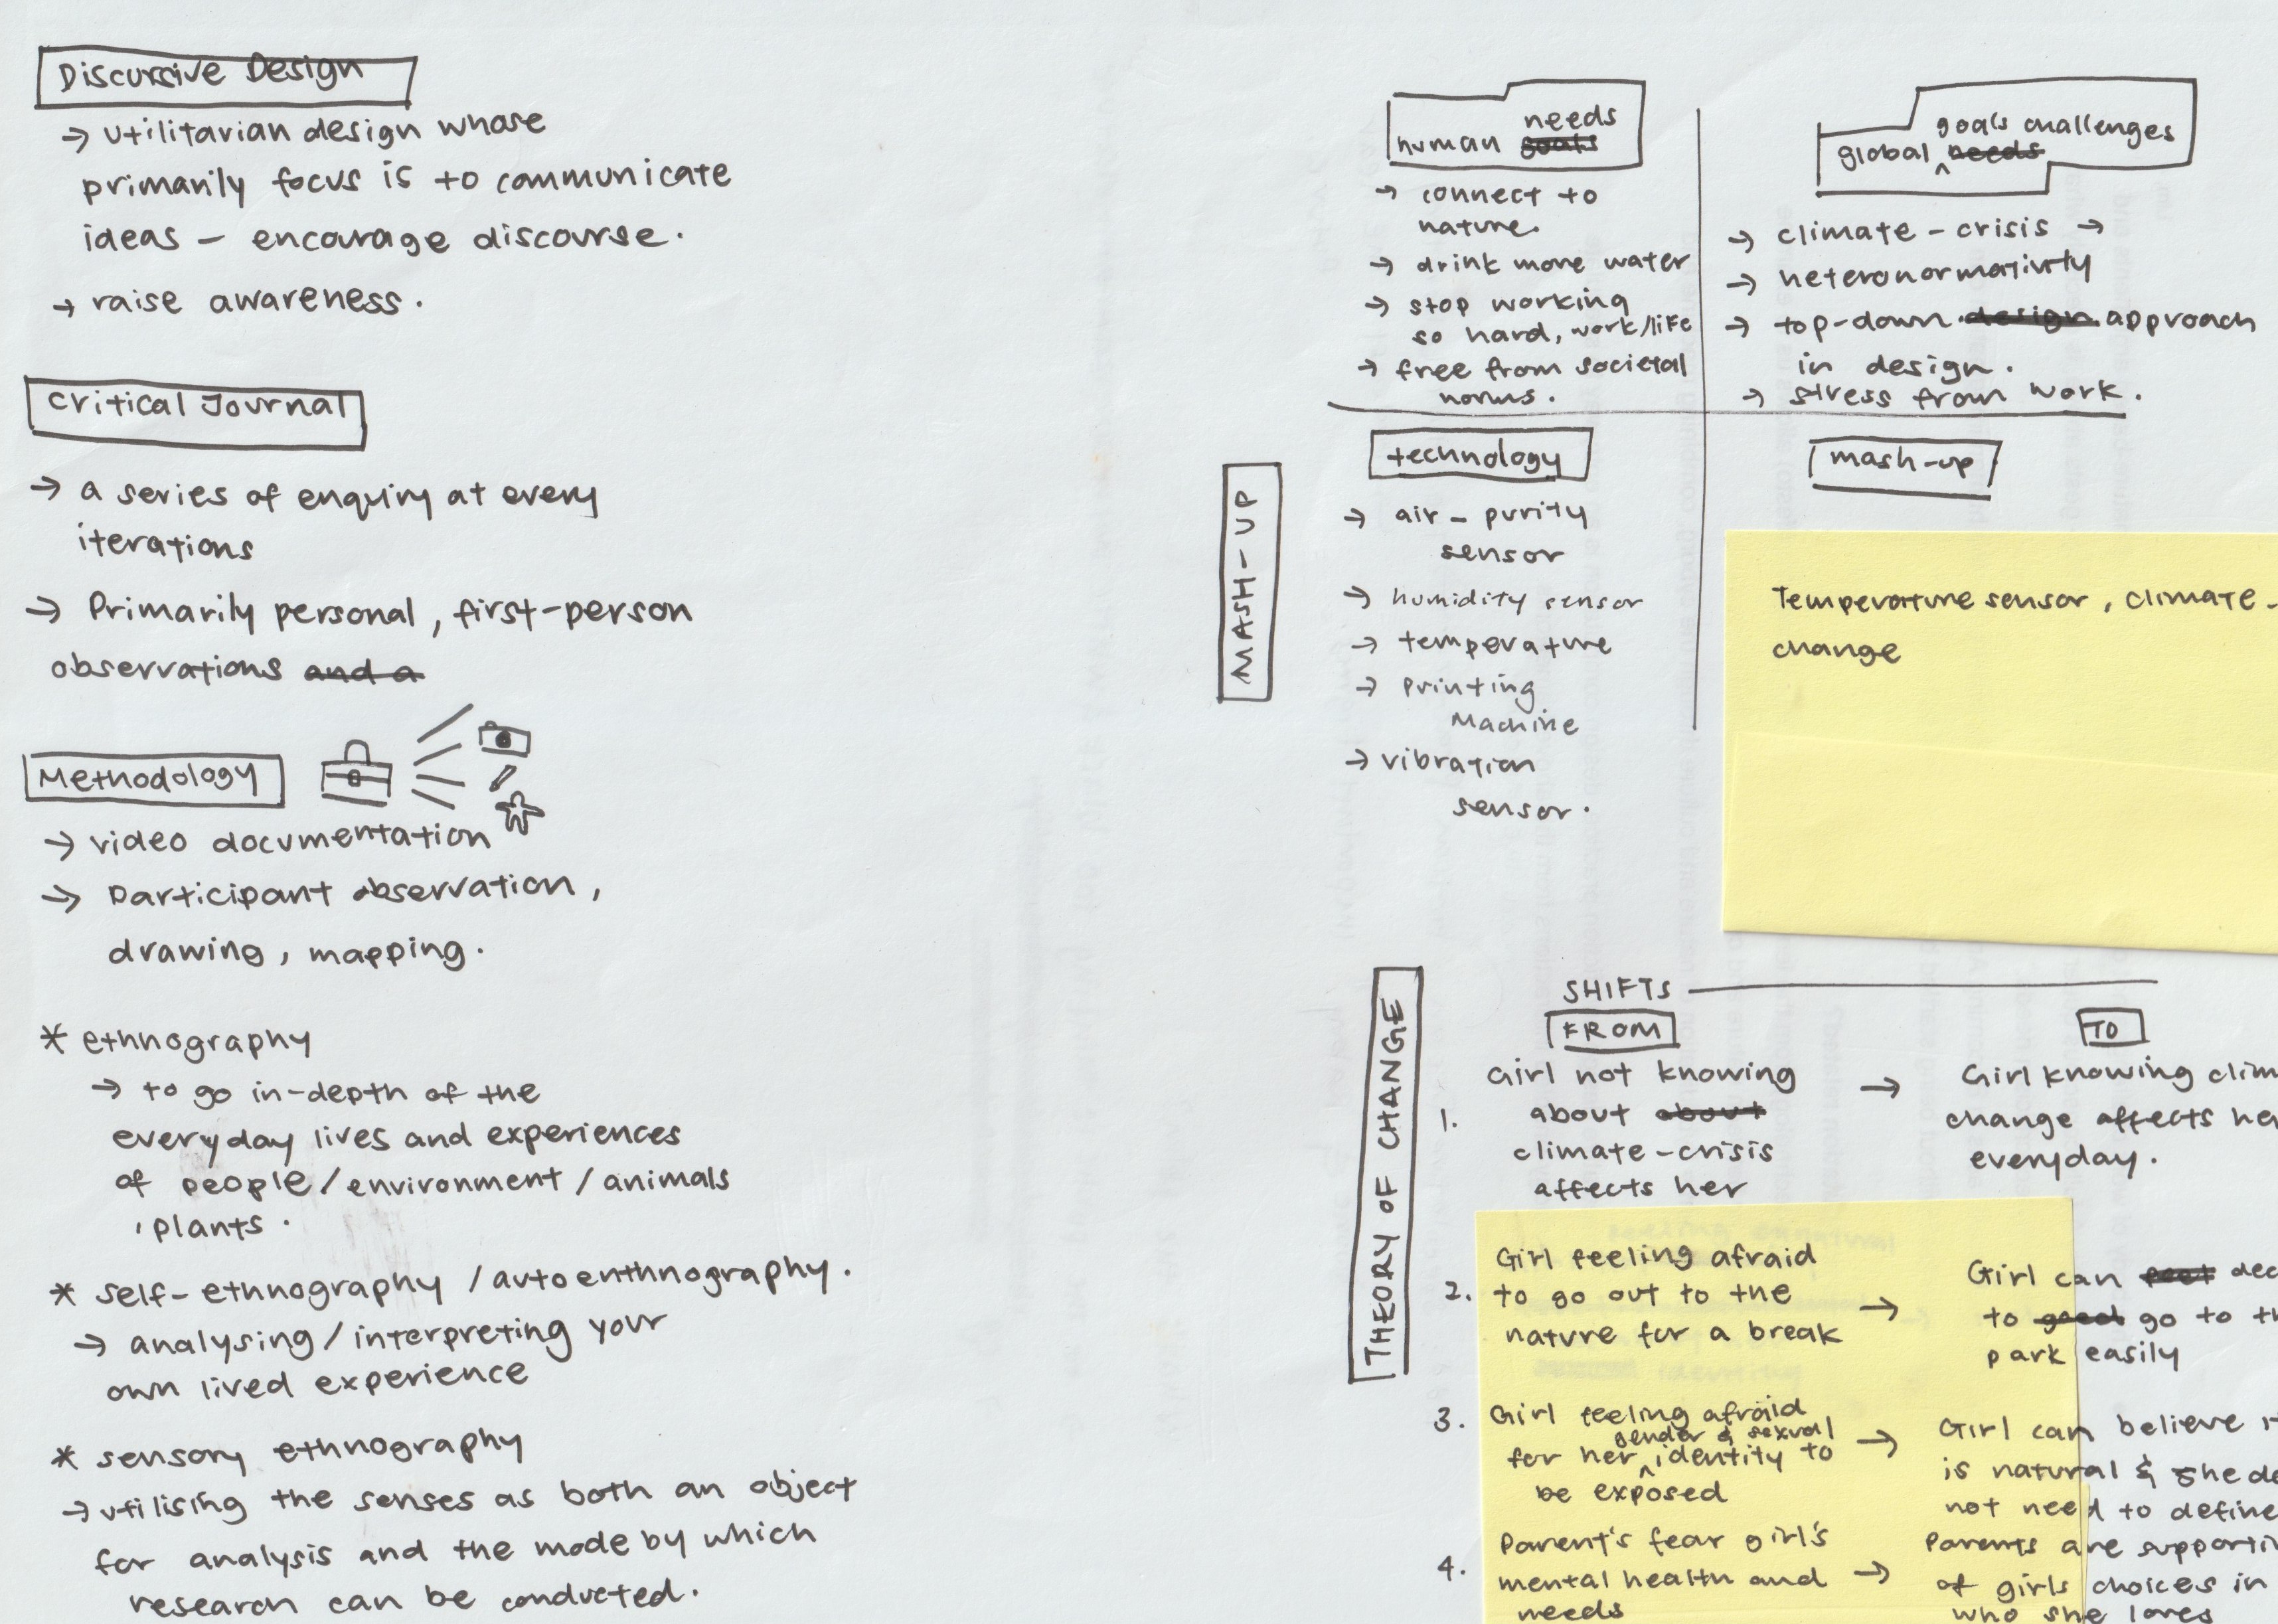 Discursive Design
→ utilitarian design whose
primarily focus is to communicate
ideas – encourage discourse.
→ raise awareness.
Critical Journal
→ a series of enquiry at every
iterations
→ Primarily personal, first-person
observations and a
Methodology
→ video documentation
→ Participant observation,
drawing, mapping.
* ethnography
→ to go in-depth of the
everyday lives and experiences
of people / environment / animals
, plants.
* self-ethnography / autoenthnography.
→ analysing / interpreting your
own lived experience
* sensory ethnography
→ utilising the senses as both an object
for analysis and the mode by which
research can be conducted.
MASH-UP
needs
human goals
→ connect to
nature.
→ drink more water
→ stop working
so hard, work/life
→ free from societal
norms.
goals challenges
global ^ needs
→ climate-crisis →
→ heteronormativity
→ top-down design approach
in design.
→ stress from work.
technology
→ air-purity
sensor
→ humidity sensor
→ temperature
→ printing
Machine
→ vibration
sensor.
mash-up
Temperature sensor, climate-
change
THEORY OF CHANGE
SHIFTS
FROM
TO
1. Girl not knowing
about about
climate-crisis
affects her
→ Girl knowing clim
change affects he
everyday.
2. Girl feeling afraid
to go out to the
nature for a break
→ Girl can feel dec
to good go to th
park easily
3. Girl feeling afraid
gender & sexual
for her ^ identity to
be exposed
→ Girl can believe it
is natural & she do
not need to define
4. Parent's fear girl's
mental health and
needs
→ Parents are supporti
of girls choices in
who she loves